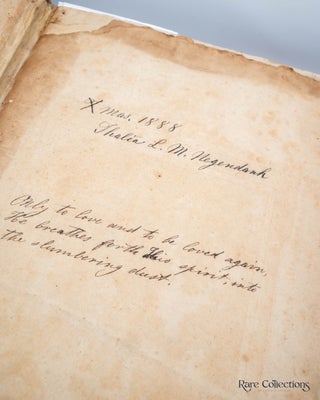 X mas. 1888
Thalia L. M. Negendank
Only to love and to be loved again,
He breathes forth His spirit, into
the slumbering dust.
Rare Collections